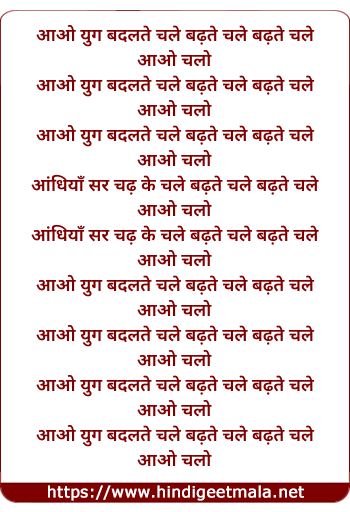 आओ युग बदलते चले बढ़ते चले बढ़ते चले
आओ चलो
आओ युग बदलते चले बढ़ते चले बढ़ते चले
आओ चलो
आओ युग बदलते चले बढ़ते चले बढ़ते चले
आओ चलो
आंधियाँ सर चढ़ के चले बढ़ते चले बढ़ते चले
आओ चलो
आंधियाँ सर चढ़ के चले बढ़ते चले बढ़ते चले
आओ चलो
आओ युग बदलते चले बढ़ते चले बढ़ते चले
आओ चलो
आओ युग बदलते चले बढ़ते चले बढ़ते चले
आओ चलो
आओ युग बदलते चले बढ़ते चले बढ़ते चले
आओ चलो
आओ युग बदलते चले बढ़ते चले बढ़ते चले
आओ चलो
https://www.hindigeetmala.net